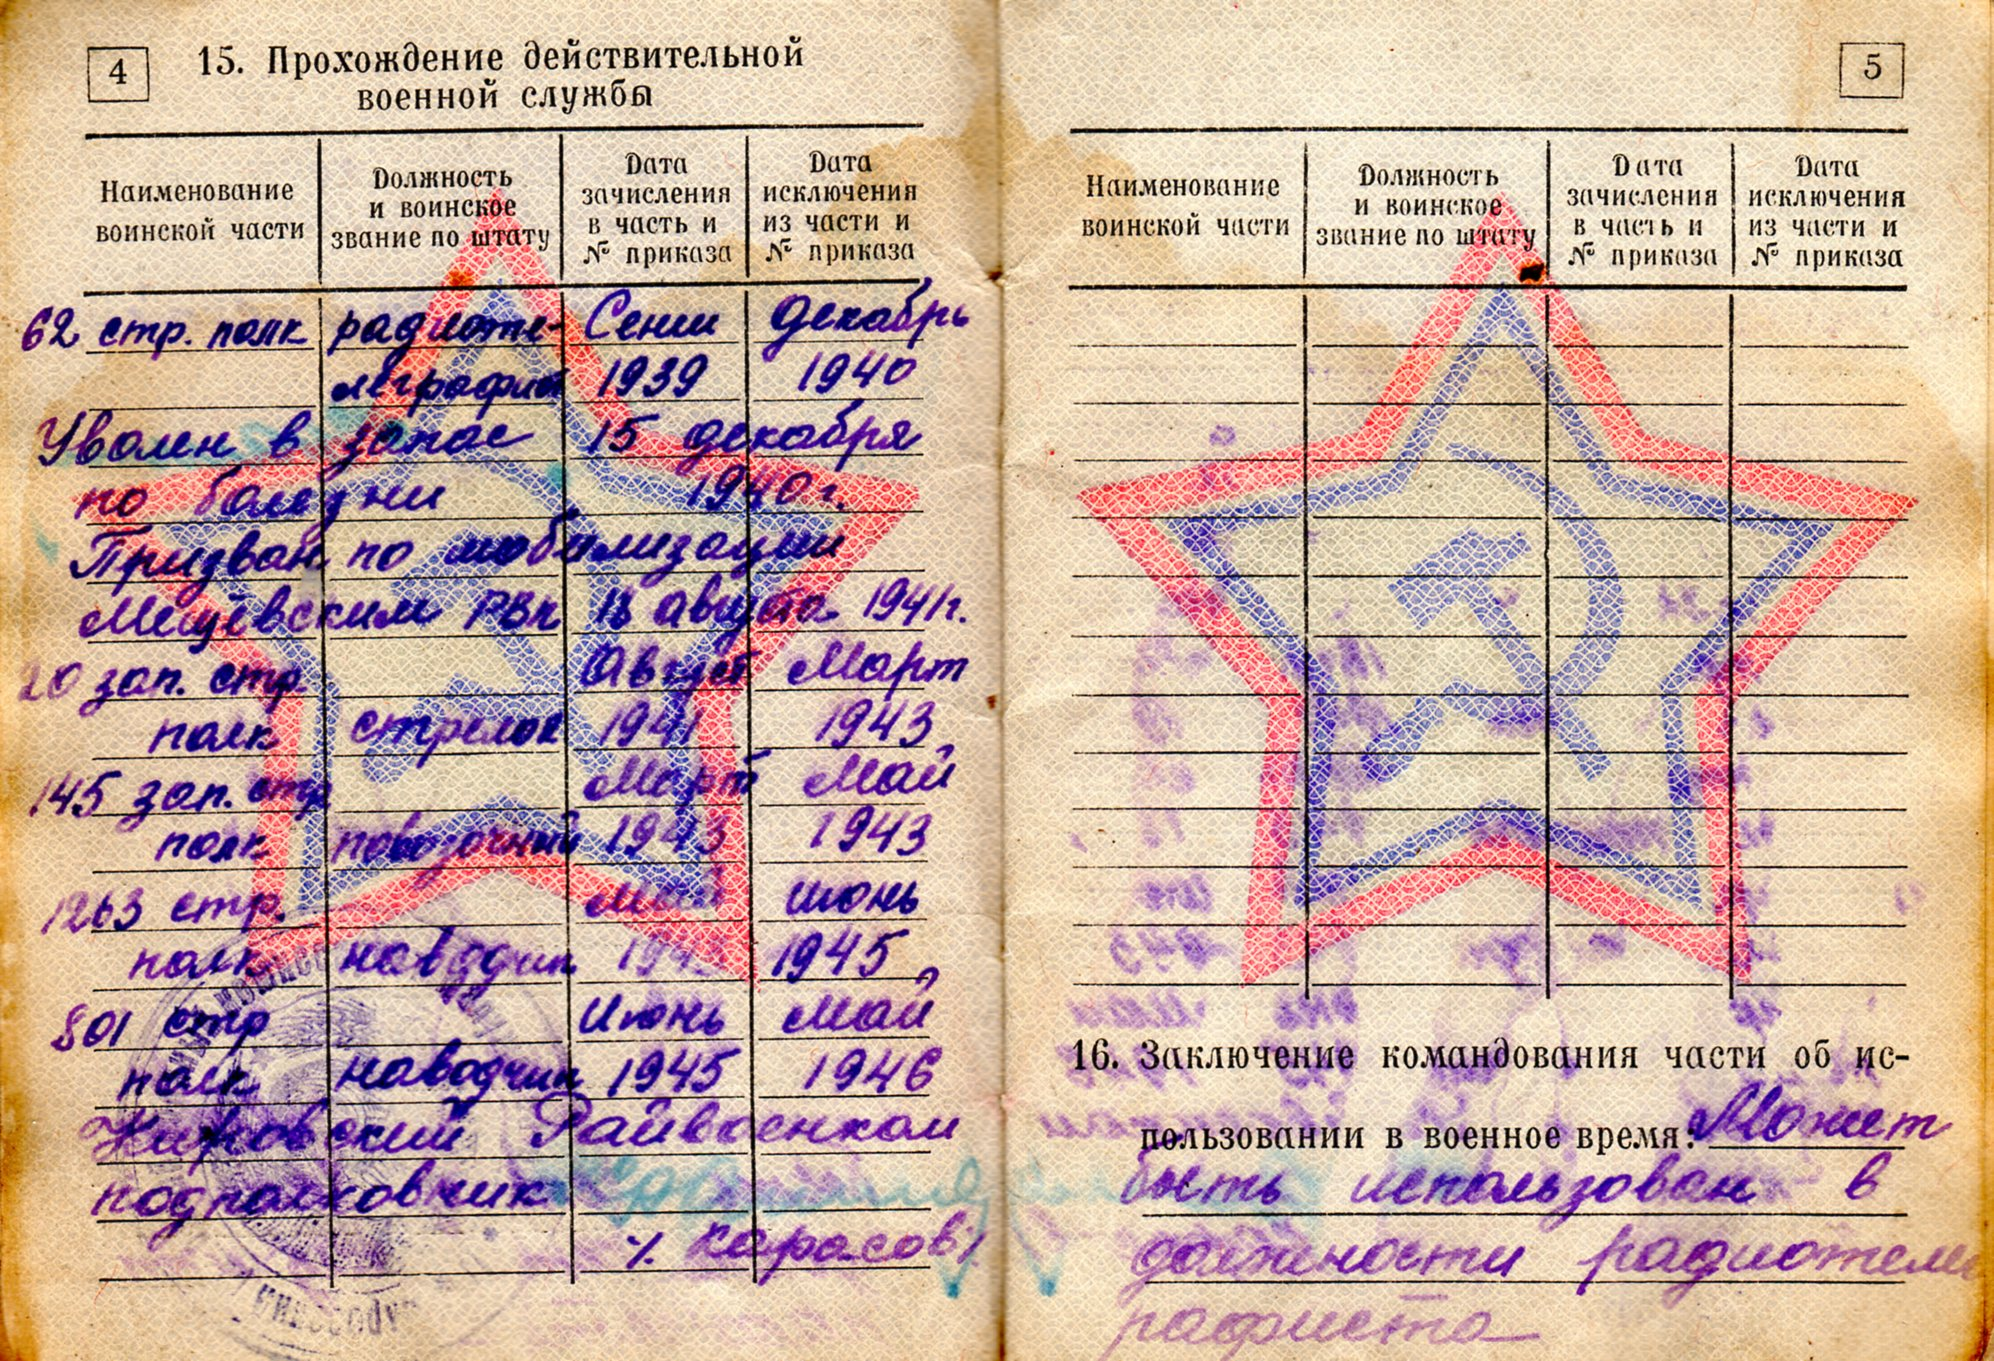 4
15. Прохождение действительной
военной службы
Наименование
воинской части
Должность
и воинское
звание по штату
Дата
зачисления
в часть и
№ приказа
Дата
исключения
из части и
№ приказа
62 стр. полк радиоте- Сент декабрь
леграфист 1939 1940
Уволен в запас 15 декабря
по болезни 1940 г.
Призван по мобилизации
Мещёвским РВК 18 августа 1941г.
20 зап. стр. Август Март
полк стрелок 1941 1943
145 зап. стр Март Май
полк повозочный 1943 1943
1263 стр. Май июнь
полк наводчик 1943 1945
801 стр Июнь Май
полк наводчик 1945 1946
Кировский Райвоенком
подполковник
/. Карасов/.
5
Наименование
воинской части
Должность
и воинское
звание по штату
Дата
зачисления
в часть и
№ приказа
Дата
исключения
из части и
№ приказа
16. Заключение командования части об ис-
пользовании в военное время: Может
быть использован в
должности радиотелег
рафиста